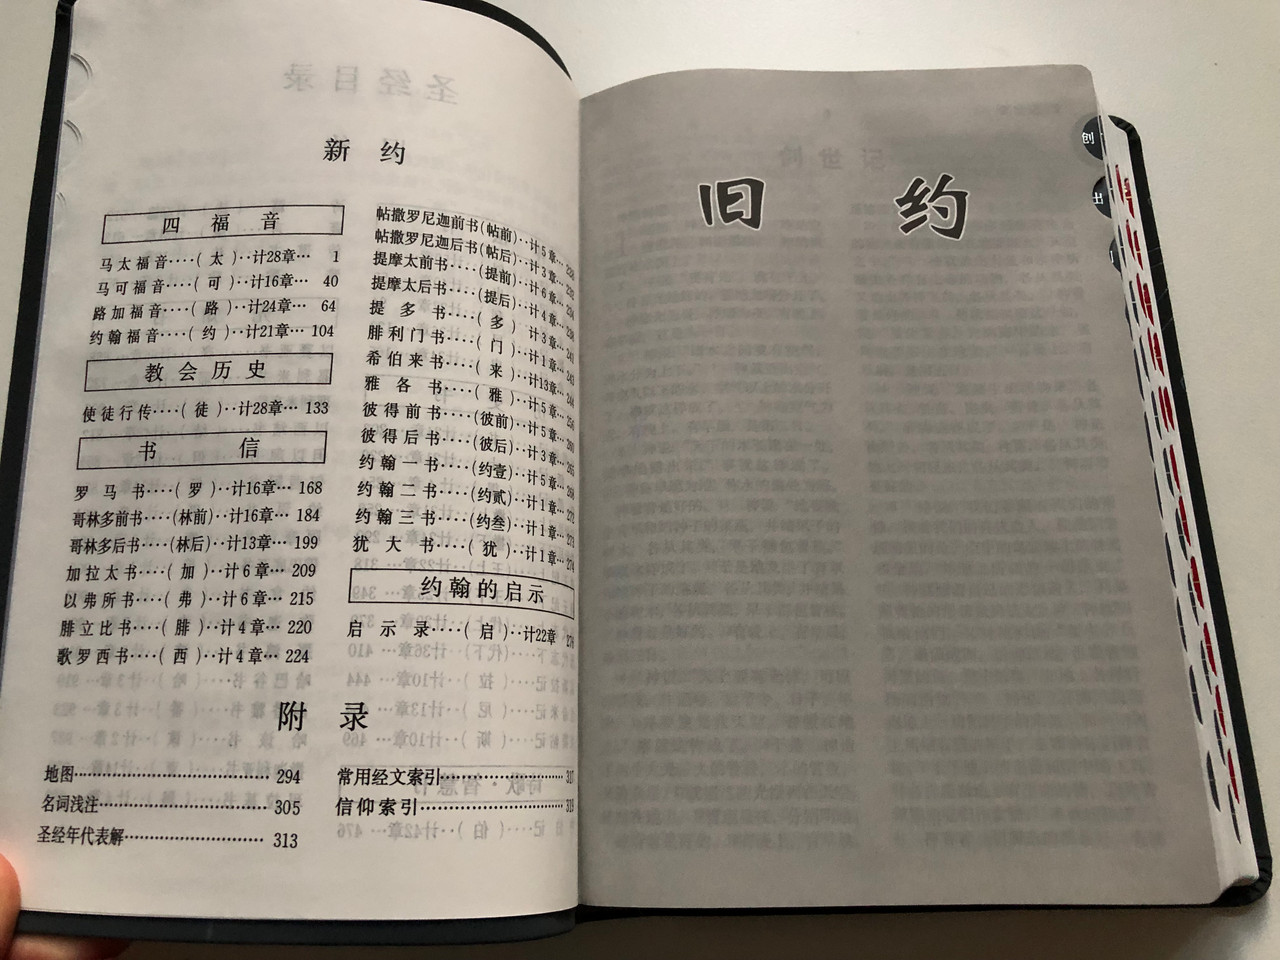 新 约
四 福 音
马太福音····( 太 )··计28章··· 1
马可福音····( 可 )··计16章··· 40
路加福音····( 路 )··计24章··· 64
约翰福音····( 约 )··计21章··· 104
教会历史
使徒行传····( 徒 )··计28章··· 133
书 信
罗 马 书····( 罗 )··计16章··· 168
哥林多前书····(林前)··计16章··· 184
哥林多后书····(林后)··计13章··· 199
加拉太书····( 加 )··计 6 章··· 209
以弗所书····( 弗 )··计 6 章··· 215
腓立比书····( 腓 )··计 4 章··· 220
歌罗西书····( 西 )··计 4 章··· 224
帖撒罗尼迦前书(帖前)··计 5 章···
帖撒罗尼迦后书(帖后)··计 3 章···
提摩太前书····(提前)··计 6 章···
提摩太后书····(提后)··计 4 章···
提 多 书····( 多 )··计 3 章···
腓利门书····( 门 )··计 1 章···
希伯来书····( 来 )··计13章···
雅 各 书····( 雅 )··计 5 章···
彼得前书····(彼前)··计 5 章···
彼得后书····(彼后)··计 3 章···
约翰一书····(约壹)··计 5 章···
约翰二书····(约贰)··计 1 章···
约翰三书····(约叁)··计 1 章···
犹 大 书····( 犹 )··计 1 章···
约翰的启示
启 示 录····( 启 )··计22章
附 录
地图··············· 294
名词浅注··············· 305
圣经年代表解··············· 313
常用经文索引··············· 317
信仰索引··············· 319
旧 约
创
出